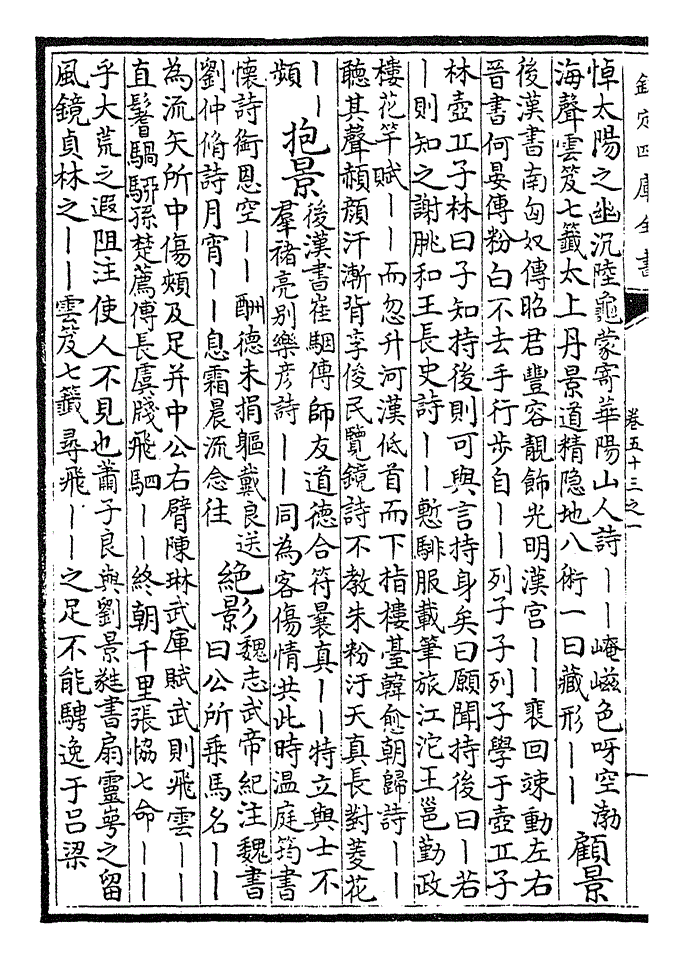 欽定四庫全書
卷五十三之一
一
悼太陽之幽沉陸龜蒙寄華陽山人詩——崦嵫色呀空渤
海聲雲笈七籤太上丹景道精隐地八術一曰藏形——
顧景
後漢書南匈奴傳昭君豐容靚飾光明漢宫——裴回竦動左右
晉書何晏傳粉白不去手行步自——列子子列子學于壺丘子
林壺丘子林曰子知持後則可與言持身矣曰願聞持後曰—若
—則知之謝朓和王長史詩——慙騑服載筆旅江沱王邕勤政
樓花竿賦——而忽升河漢低首而下指樓臺韓愈朝歸詩——
聽其聲赬顔汗漸背李俊民覽鏡詩不教朱粉汙天真長對菱花
——
頻
抱景
後漢書崔駰傳師友道德合符曩真——特立與士不
羣褚亮别樂彦詩——同為客傷情共此時温庭筠書
懷詩銜恩空——酬德未捐軀戴良送
劉仲脩詩月宵——息霜晨流念往
絶影
魏志武帝紀注魏書
曰公所乘馬名——
為流矢所中傷頰及足并中公右臂陳琳武庫賦武則飛雲——
直鬐騧驑孫楚薦傅長虞牋飛駟——終朝千里張協七命——
乎大荒之遐阻注使人不見也蕭子良與劉景蕤書扇靈蕚之留
風鏡貞林之——雲笈七籤尋飛——之足不能騁逸于吕梁